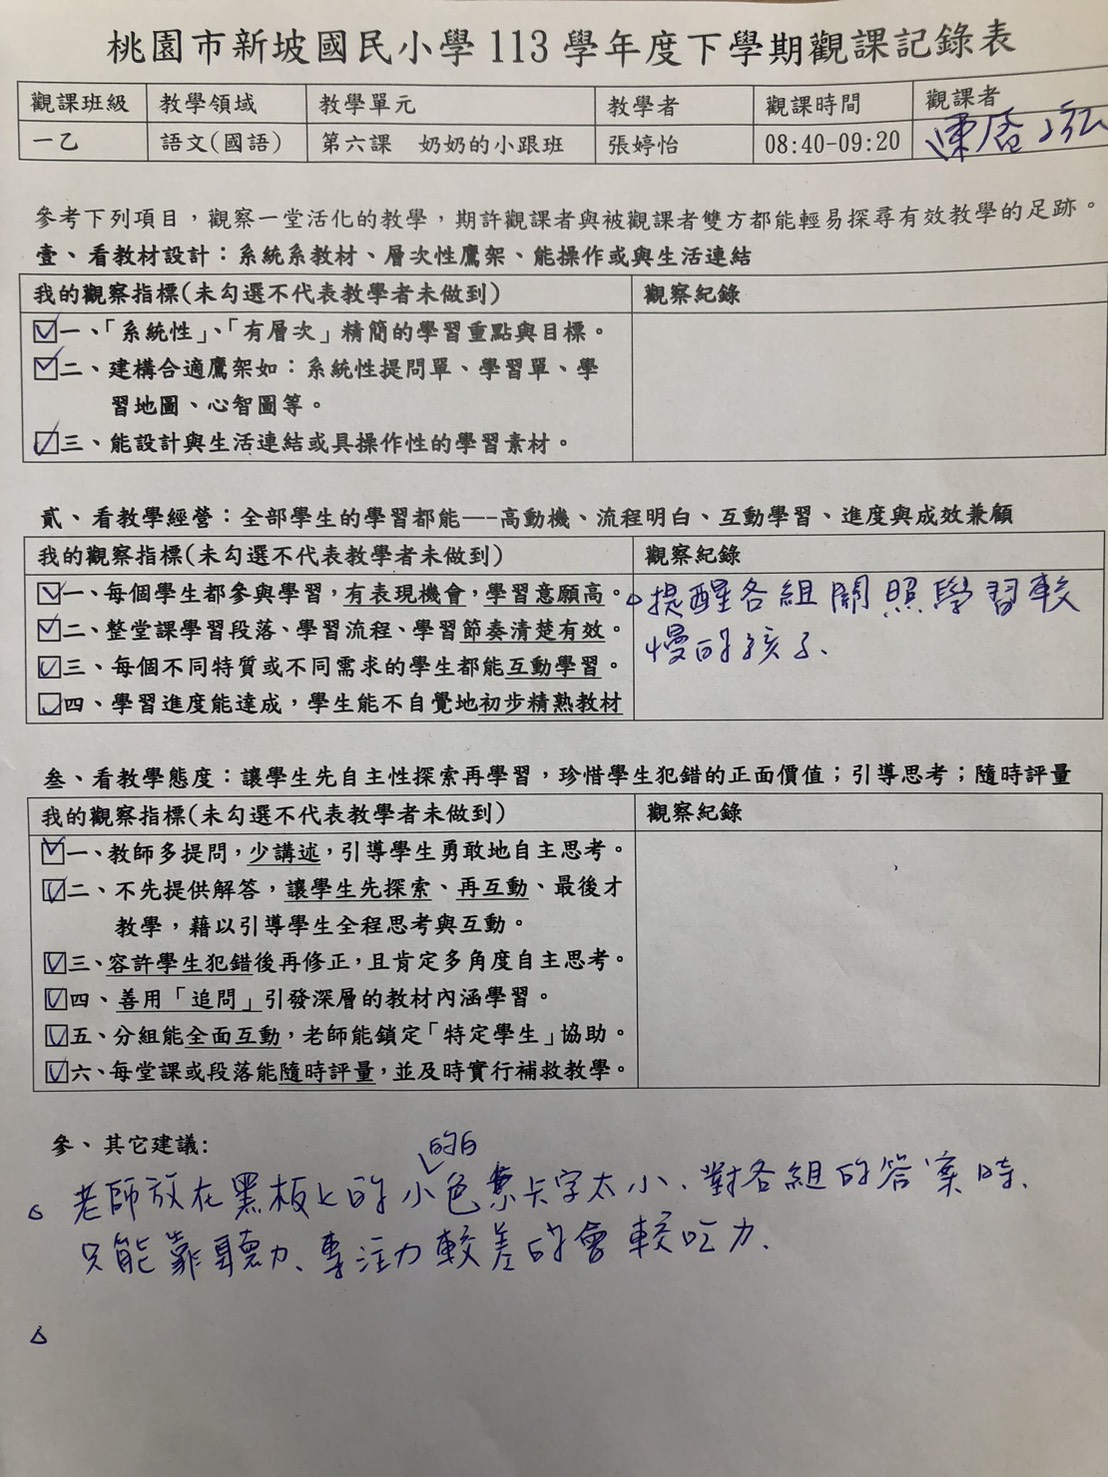 桃園市新坡國民小學 113 學年度下學期觀課記錄表
觀課班級 教學領域 教學單元 教學者 觀課時間 觀課者
一乙 語文(國語) 第六課 奶奶的小跟班 張婷怡 08:40-09:20 陳
參考下列項目，觀察一堂活化的教學，期許觀課者與被觀課者雙方都能輕易探尋有效教學的足跡。
壹、看教材設計：系統系教材、層次性鷹架、能操作或與生活連結
我的觀察指標(未勾選不代表教學者未做到) 觀察紀錄
☑一、「系統性」、「有層次」精簡的學習重點與目標。
☑二、建構合適鷹架如：系統性提問單、學習單、學
習地圖、心智圖等。
☑三、能設計與生活連結或具操作性的學習素材。
貳、看教學經營：全部學生的學習都能——高動機、流程明白、互動學習、進度與成效兼顧
我的觀察指標(未勾選不代表教學者未做到) 觀察紀錄
☑一、每個學生都參與學習，有表現機會，學習意願高。 △提醒各組關照學習較
☑二、整堂課學習段落、學習流程、學習節奏清楚有效。 慢的孩子、
☑三、每個不同特質或不同需求的學生都能互動學習。
☑四、學習進度能達成，學生能不自覺地初步精熟教材
叁、看教學態度：讓學生先自主性探索再學習，珍惜學生犯錯的正面價值；引導思考；隨時評量
我的觀察指標(未勾選不代表教學者未做到) 觀察紀錄
☑一、教師多提問，少講述，引導學生勇敢地自主思考。
☑二、不先提供解答，讓學生先探索、再互動、最後才
教學，藉以引導學生全程思考與互動。
☑三、容許學生犯錯後再修正，且肯定多角度自主思考。
☑四、善用「追問」引發深層的教材內涵學習。
☑五、分組能全面互動，老師能鎖定「特定學生」協助。
☑六、每堂課或段落能隨時評量，並及時實行補救教學。
參、其它建議:
的白
△ 老師放在黑板上的小色卡字太小、對各組的答案時、
只能靠聽力、專注力較差的會較吃力、
△